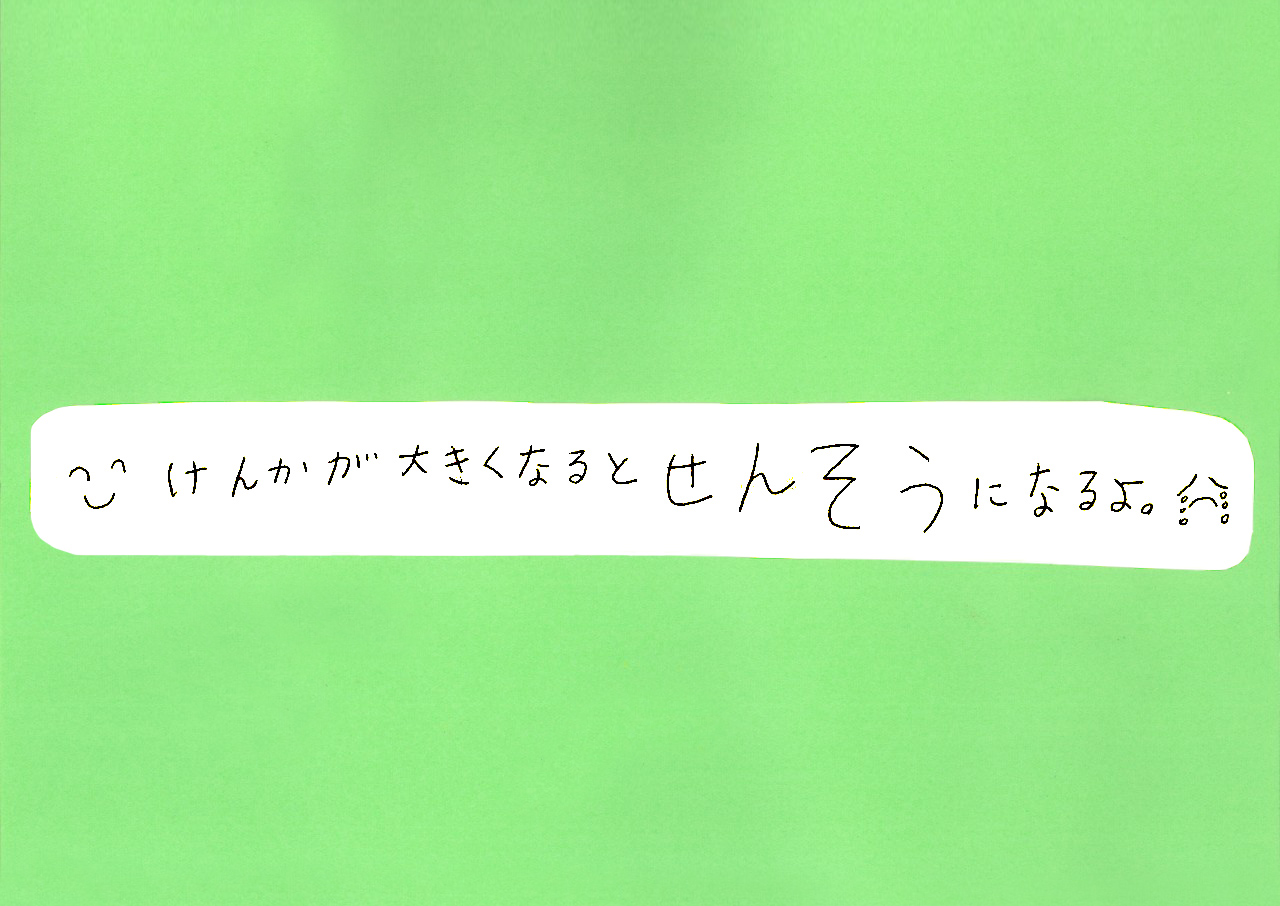 けんかが大きくなるとせんそうになるよ。